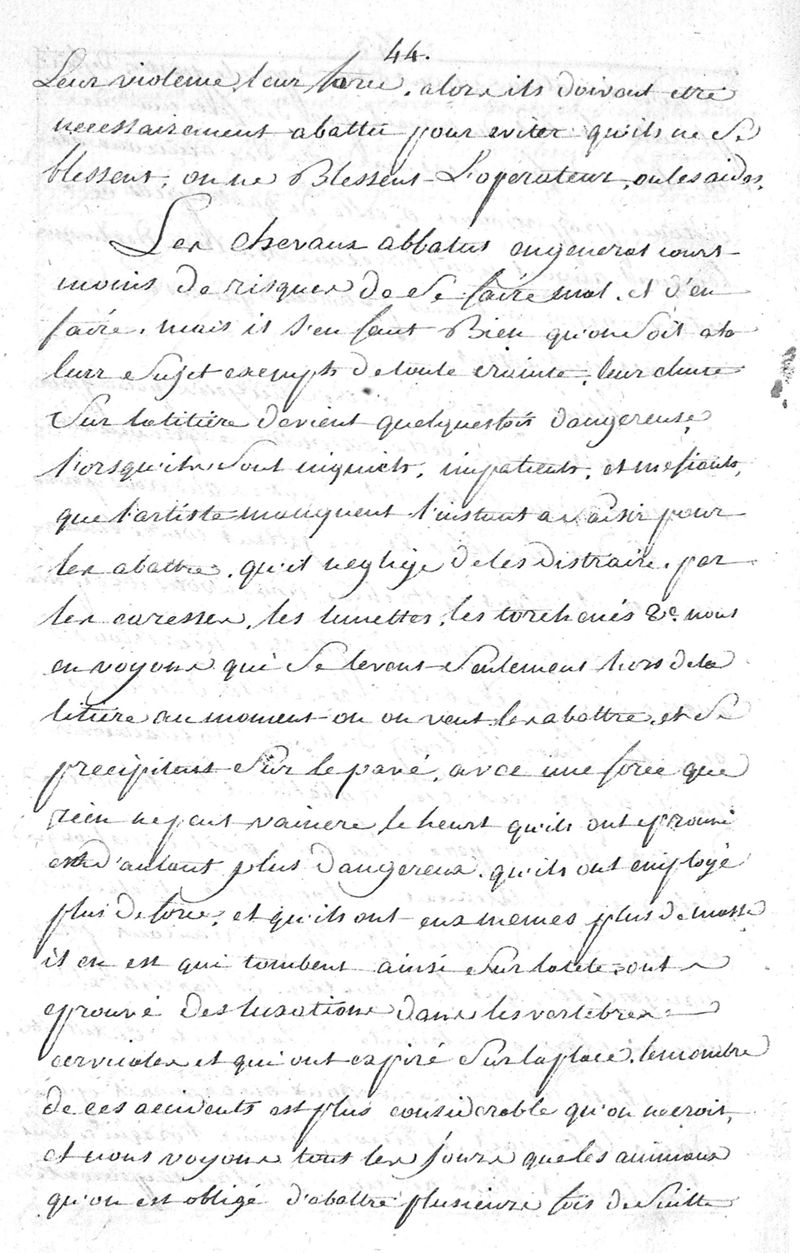 44.
Leur violence, leur force, alors ils doivent etre
necessairement abattu pour eviter qu'ils ne se
blessent, ou ne Blessent L'operateur, ou les aides,
Les chevaux abbatus en general cours
moins de risques de se faire mal, et d'en
faire, mais il s'en faut Bien qu'on soit a
leur sujet exempts de toute crainte, leur chute
Sur la litière devient quelquesfois dangereuse,
l'orsqu'ils sont inquiets, impatients, et mefiants,
que l'artiste manquent l'instant a saisir pour
les abattre, qu'il neglige de les distraire, par
les caresses, les lunettes, les torchenés &c. nous
en voyons qui se levent seulement hors de la
litiere au moment ou on veut les abattre, et se
precipitent sur le pavé, avec une force que
rien ne peut vaincre le heurt qu'ils ont eprouvé
est d'autant plus dangereux, qu'ils ont employé
plus de force, et qu'ils ont eux memes plus de masse
il en est qui tombent ainsi sur la tete, ont
eprouvé des luxations dans les vertebres
cervicales et qui ont expiré sur la place, le nombre
de ces accidents est plus considerable qu'on ne croit,
et nous voyons tous les jours que les animaux
qu'on est obligé d'abattre plusieurs fois de suitte